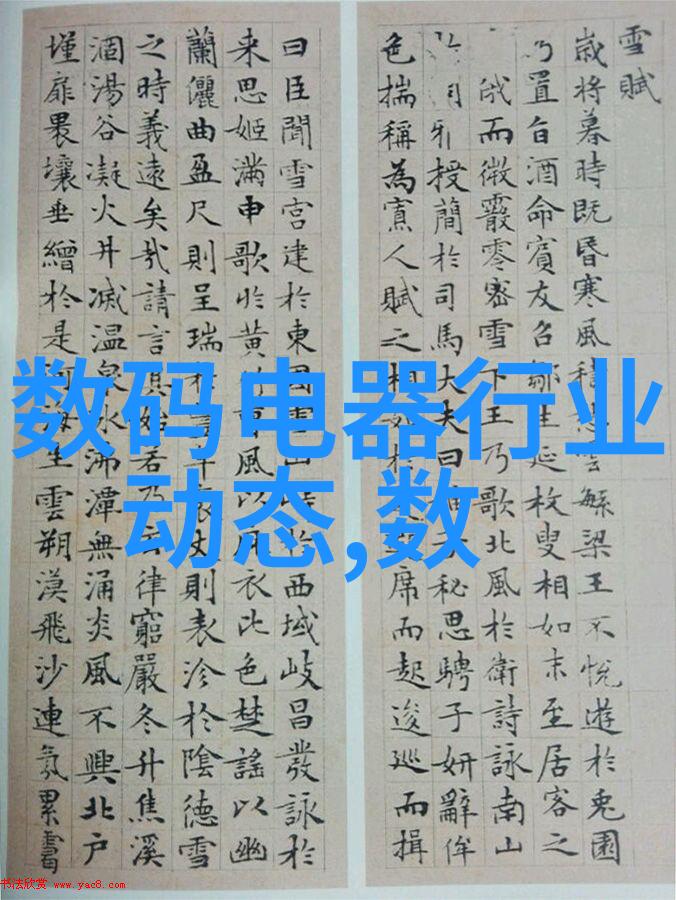 数码电器行业
动态,数
雪賦
歲將暮時既昏寒風積愁雲繁梁王不悅遊於兔園
乃置旨酒命賓友召鄒生延枚叟相如末至居客之
俄而微霰零密雪下王乃歌北風於衛詩詠南山
雅授簡於司馬大夫曰抽子秘思騁子妍辭侔
色揣稱為寡人賦之相如於避席而起逡巡而揖
曰臣聞雪宮建於東國雪山峙於西域岐昌發詠於
来思姬滿申歌於黃竹曹風以麻衣比色楚謠以幽
蘭儷曲盈尺則呈瑞於豐年袤丈則表沴於陰德雪
之時義遠矣哉請言其始若乃玄律窮嚴冬升焦溪
涸湯谷凝火井滅温泉冰沸潭無涌炎風不興北户
墐扉壤垂繒於是河海生雲朔漠飛沙連氛累靄
书法欣赏 www.yac8.com